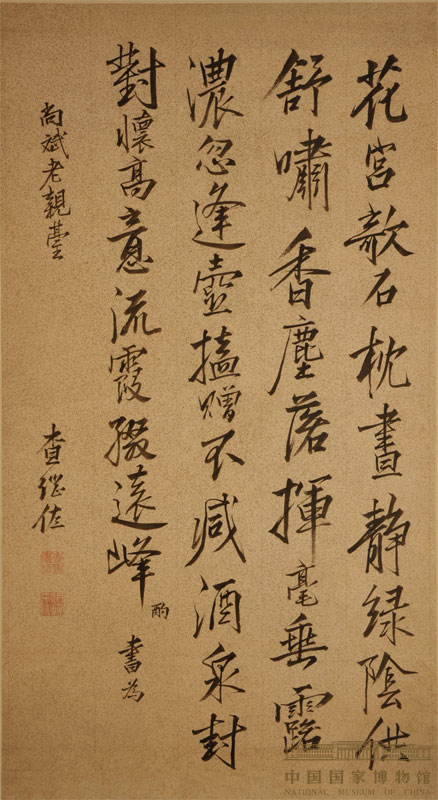 花宮欹石枕晝静綠陰供
舒嘯香塵落揮毫垂露
濃忽逢壺榼贈不減酒泉封
對懷高意流霞綴遠峰
酌
書為
尚斌老親臺
查繼佐
中国国家博物馆
NATIONAL MUSEUM OF CHINA